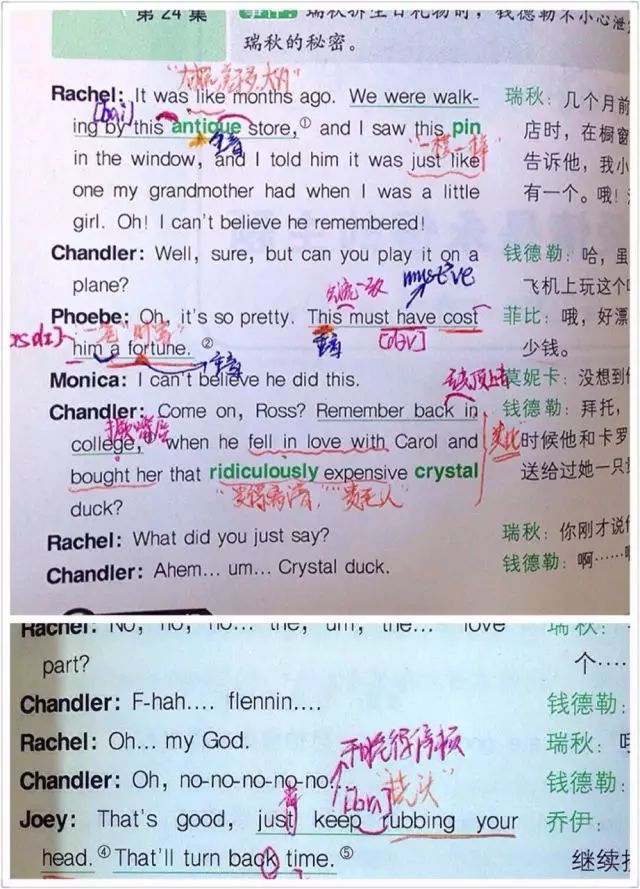 第 24 集
瑞秋拆生日礼物时，钱德勒不小心泄
瑞秋的秘密。
Rachel: It was like months ago. We were walk-
ing by this antique store,① and I saw this pin
in the window, and I told him it was just like
one my grandmother had when I was a little
girl. Oh! I can't believe he remembered!
Chandler: Well, sure, but can you play it on a
plane?
Phoebe: Oh, it's so pretty. This must have cost
him a fortune. ②
Monica: I can't believe he did this.
Chandler: Come on, Ross? Remember back in
college, when he fell in love with Carol and
bought her that ridiculously expensive crystal
duck?
Rachel: What did you just say?
Chandler: Ahem... um... Crystal duck.
瑞秋：几个月前
店时，在橱窗
告诉他，我小
有一个。哦！
钱德勒：哈，虽
飞机上玩这个
菲比：哦，好漂
少钱。
莫妮卡：没想到
钱德勒：拜托，
时候他和卡罗
送给过她一只
瑞秋：你刚才说
钱德勒：啊……
[bai]
一模一样
must've
重音
重音
类比
Rachel: No, no, no... the, um, the... love
part?
Chandler: F-hah.... flennin....
Rachel: Oh... my God.
Chandler: Oh, no-no-no-no-no.
Joey: That's good, just keep rubbing your
head.④ That'll turn back time.⑤
瑞秋：
个……
钱德勒：
瑞秋：
钱德勒：
乔伊：
继续